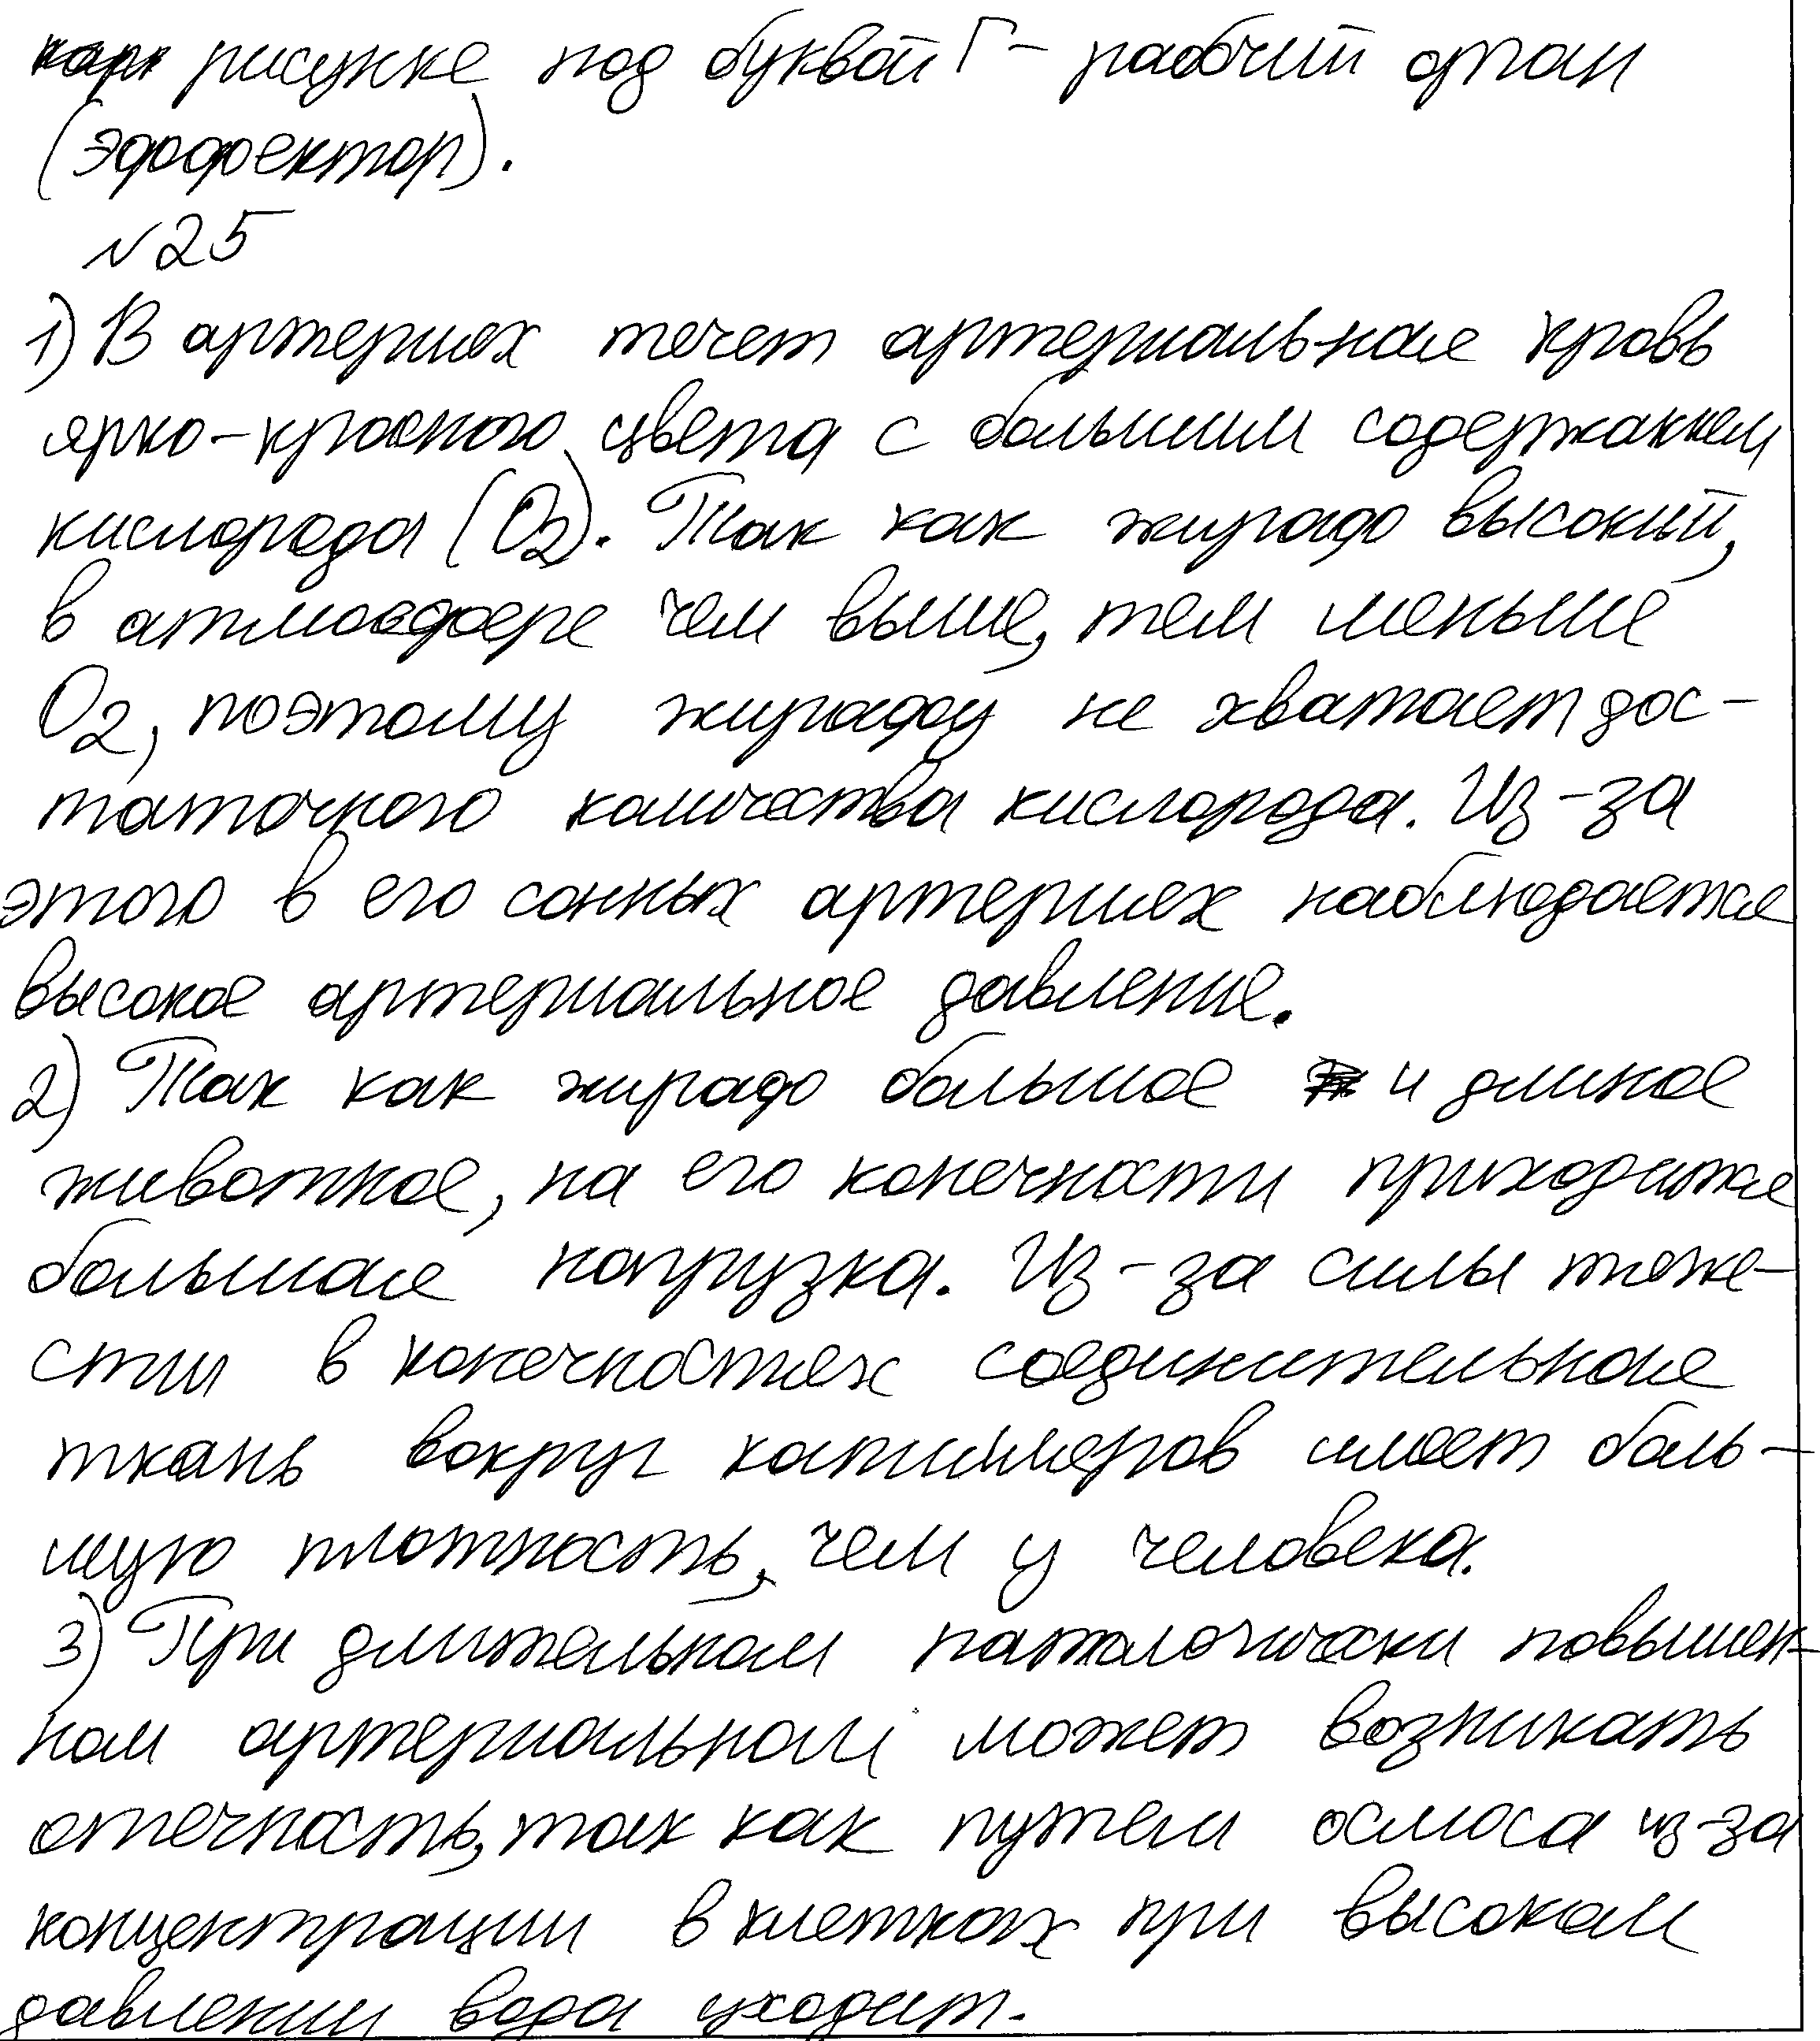 рисунке под буквой Г - рабочий орган
(эффектор).
№25
1) В артериях течет артериальная кровь
ярко-красного цвета с большим содержанием
кислорода (O2). Так как жираф высокий,
в атмосфере чем выше, тем меньше
O2, поэтому жирафу не хватает дос-
таточного количества кислорода. Из-за
этого в его сонных артериях наблюдается
высокое артериальное давление.
2) Так как жираф большое и длиное
животное, на его конечности приходится
большая нагрузка. Из-за силы тяже-
сти в конечностях соединительная
ткань вокруг капилляров имеет боль-
шую плотность, чем у человека.
3) При длительном паталогически повышен-
ном артериальном может возникать
отечность, так как путем осмоса из-за
концентрации в клетках при высоком
давлении вода уходит.